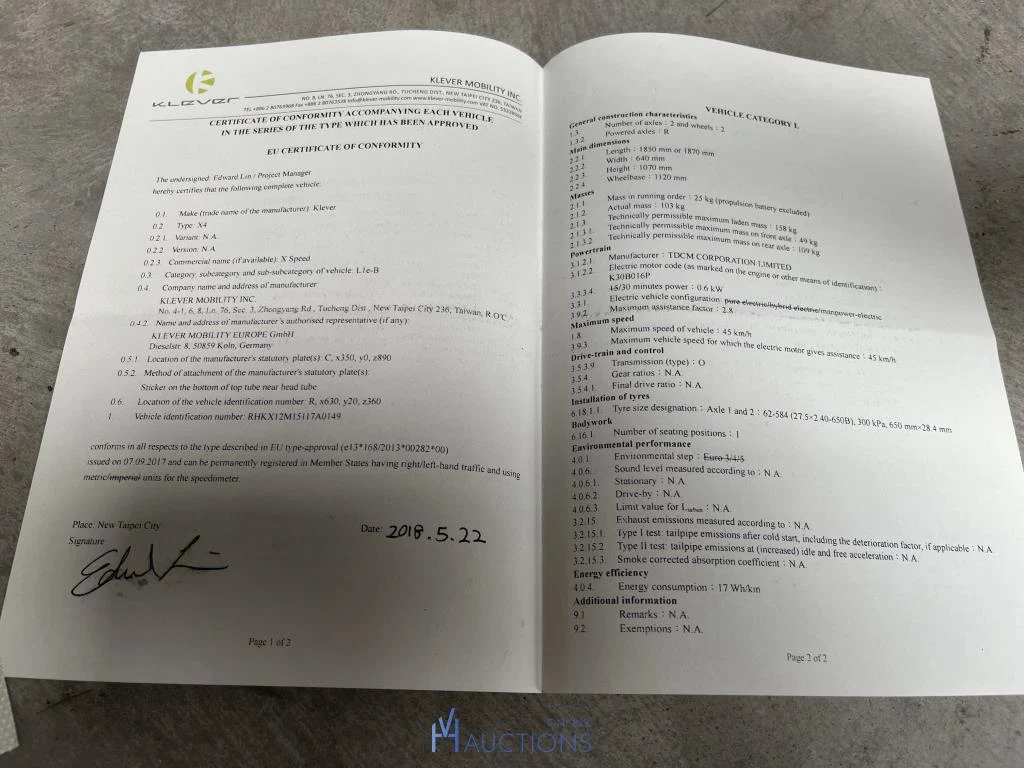 KLEVER
KLEVER MOBILITY INC.
NO. 8, LN. 76, SEC. 3, ZHONGYANG RD., TUCHENG DIST., NEW TAIPEI CITY 236, TAIWAN
TEL +886 2 80763968 Fax +886 2 80763528 info@klever-mobility.com www.klever-mobility.com VAT NO.
CERTIFICATE OF CONFORMITY ACCOMPANYING EACH VEHICLE
IN THE SERIES OF THE TYPE WHICH HAS BEEN APPROVED
EU CERTIFICATE OF CONFORMITY
The undersigned: Edward Lin / Project Manager
hereby certifies that the following complete vehicle:
0.1. Make (trade name of the manufacturer): Klever
0.2. Type: X4
0.2.1. Variant: N.A.
0.2.2. Version: N.A.
0.2.3. Commercial name (if available): X Speed
0.3. Category, subcategory and sub-subcategory of vehicle: L1e-B
0.4. Company name and address of manufacturer:
KLEVER MOBILITY INC.
No. 4-1, 6, 8, Ln. 76, Sec. 3, Zhongyang Rd., Tucheng Dist., New Taipei City 236, Taiwan, R.O.C.
0.4.2. Name and address of manufacturer's authorised representative (if any):
KLEVER MOBILITY EUROPE GmbH
Dieselstr. 8, 50859 Koln, Germany
0.5.1. Location of the manufacturer's statutory plate(s): C, x350, y0, z890
0.5.2. Method of attachment of the manufacturer's statutory plate(s):
Sticker on the bottom of top tube near head tube
0.6. Location of the vehicle identification number: R, x630, y20, z360
1. Vehicle identification number: RHKX12M15117A0149
conforms in all respects to the type described in EU type-approval (e13*168/2013*00282*00)
issued on 07.09.2017 and can be permanently registered in Member States having right/left-hand traffic and using
metric/imperial units for the speedometer.
Place: New Taipei City
Date: 2018.5.22
Signature:
Edward Lin
Page 1 of 2
VEHICLE CATEGORY L
General construction characteristics
1.3. Number of axles : 2 and wheels : 2
1.3.2. Powered axles : R
Main dimensions
2.2.1. Length : 1850 mm or 1870 mm
2.2.2. Width : 640 mm
2.2.3. Height : 1070 mm
2.2.4. Wheelbase : 1120 mm
Masses
2.1.1. Mass in running order : 25 kg (propulsion battery excluded)
2.1.2. Actual mass : 103 kg
2.1.3. Technically permissible maximum laden mass : 158 kg
2.1.3.1. Technically permissible maximum mass on front axle : 49 kg
2.1.3.2. Technically permissible maximum mass on rear axle : 109 kg
Powertrain
3.1.2.1. Manufacturer : TDCM CORPORATION LIMITED
3.1.2.2. Electric motor code (as marked on the engine or other means of identification) :
K30B016P
3.3.3.4. 15/30 minutes power : 0.6 kW
3.3.1. Electric vehicle configuration: pure electric/hybrid electric/manpower-electric
3.9.2. Maximum assistance factor : 2.8
Maximum speed
1.8. Maximum speed of vehicle : 45 km/h
3.9.3. Maximum vehicle speed for which the electric motor gives assistance : 45 km/h
Drive-train and control
3.5.3.9. Transmission (type) : O
3.5.4. Gear ratios : N.A.
3.5.4.1. Final drive ratio : N.A.
Installation of tyres
6.18.1.1. Tyre size designation : Axle 1 and 2 : 62-584 (27.5×2.40-650B), 300 kPa, 650 mm×28.4 mm
Bodywork
6.16.1. Number of seating positions : 1
Environmental performance
4.0.1. Environmental step : Euro 3/4/5
4.0.6. Sound level measured according to : N.A.
4.0.6.1. Stationary : N.A.
4.0.6.2. Drive-by : N.A.
4.0.6.3. Limit value for Lurban : N.A.
3.2.15. Exhaust emissions measured according to : N.A.
3.2.15.1. Type I test: tailpipe emissions after cold start, including the deterioration factor, if applicable : N.A.
3.2.15.2. Type II test: tailpipe emissions at (increased) idle and free acceleration : N.A.
3.2.15.3. Smoke corrected absorption coefficient : N.A.
Energy efficiency
4.0.4. Energy consumption : 17 Wh/km
Additional information
9.1 Remarks : N.A.
9.2. Exemptions : N.A.
Page 2 of 2
ONLINE
AUCTIONS